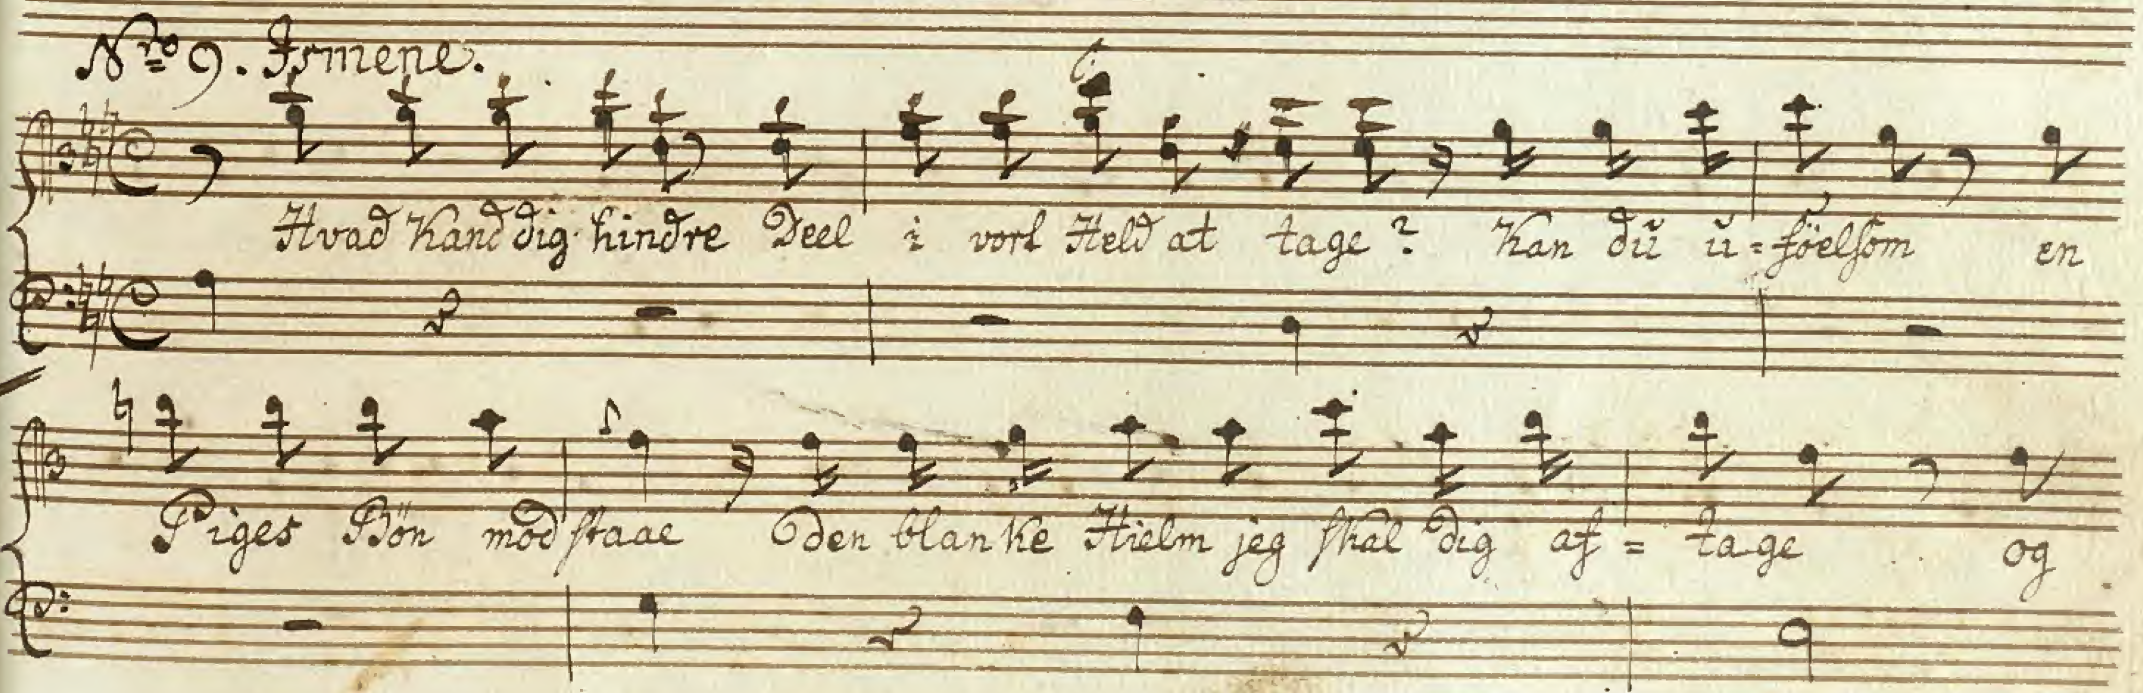 Nro 9. Ismene.
Hvad Kand dig hindre Deel i vort Held at tage? Kan du u=föelsom en
Piges Bön modstaae Den blanke Hielm jeg skal dig af=tage og